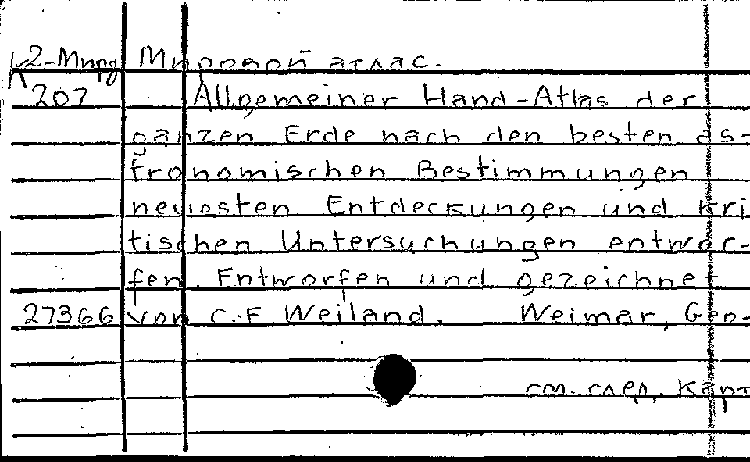 К2-Мирд Мировой атлас.
207 Allgemeiner Hand-Atlas der
ganzen Erde nach den besten as-
tronomischen Bestimmungen
neuesten Entdeckungen und kri
tischen Untersuchungen entwor-
fen. Entworfen und gezeichnet
27366 von C.F Weiland. Weimar, Geo-
см. след. карт